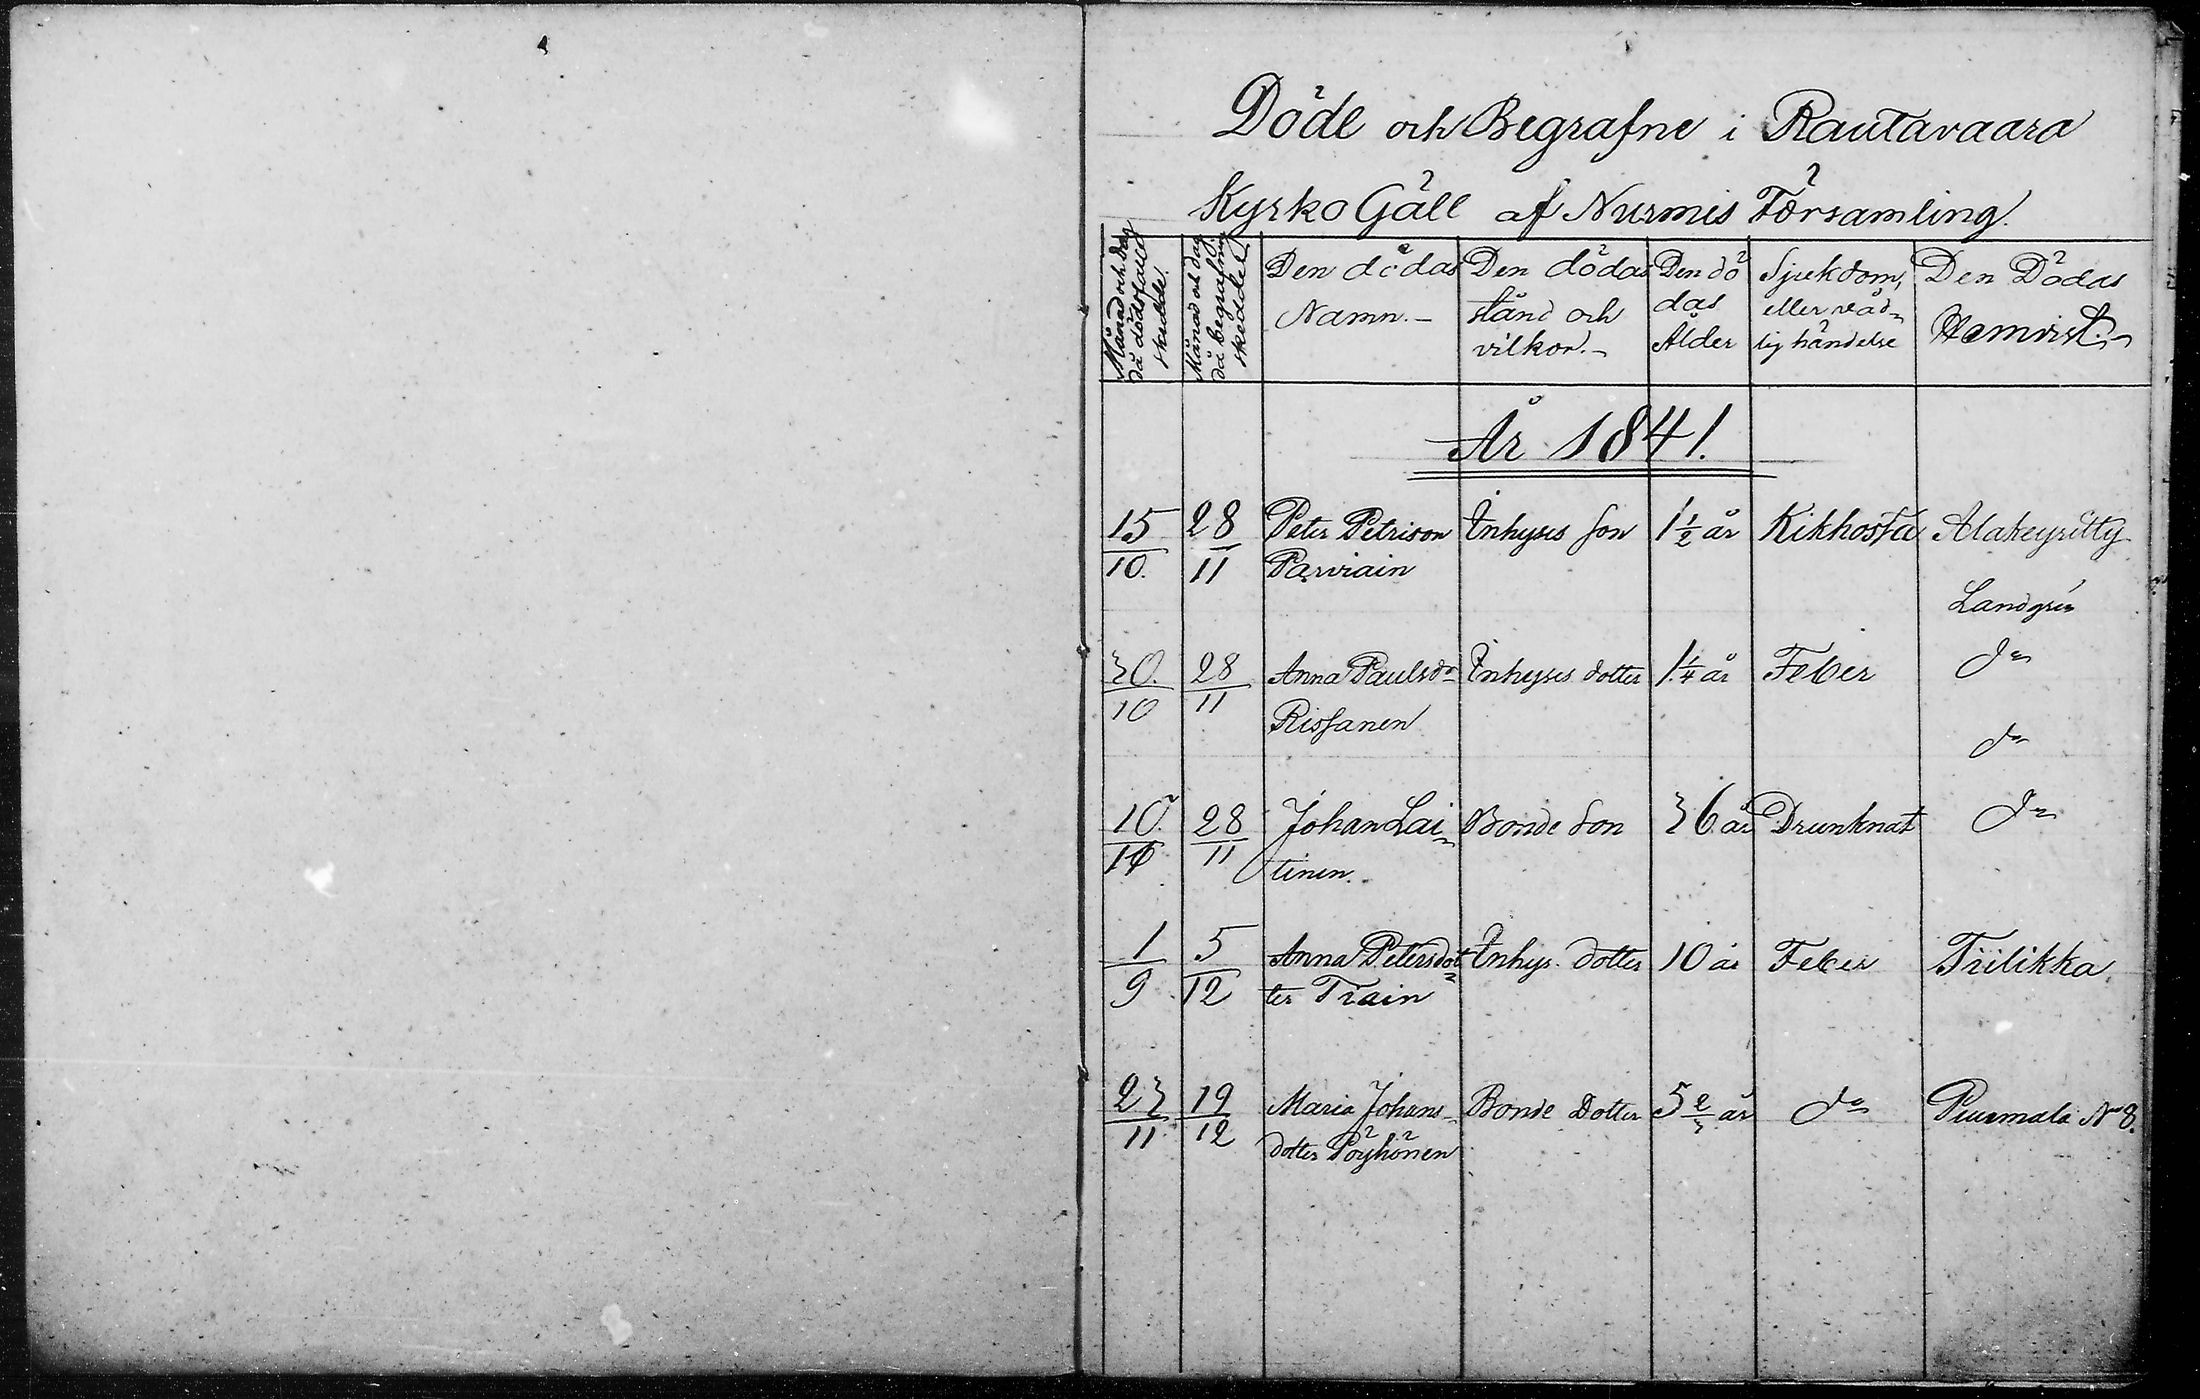 Döde och Begrafne i Rautavaara
Kyrko Gäll af Nurmis Församling.
Månad och dag då dödsfallet skedde.
Månad och dag då begrafning skedde
Den dödas Namn.
Den dödas stånd och vilkor.
Den dödas Ålder
Sjukdom, eller vådlig händelse
Den Dödas Hemvist.
År 1841.
15/10. 28/11 Peter Petrison Inhyses son 1 1/2 år Kikhosta Alakeyritty
Parviain
30./10 28/11 Anna Paulsdr Inhyses dotter 1 1/4 år Feber do
Rissanen do
10./10 28/11 Johan Lai- Bonde son 36 år Drunknat do
tinen.
1/9 5/12 Anna Petersdot- Inhys. dotter 10 år Feber Tiilikka
ter Train
23/11 19/12 Maria Johans- Bonde Dotter 5 2/3 år do Puumala No 8.
dotter Pöyhönen